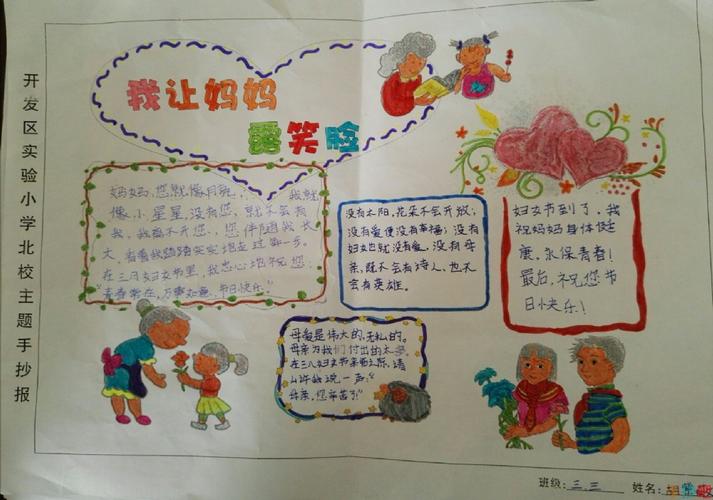 开发区实验小学北校主题手抄报
我让妈妈
露笑脸
妈妈,您就像月亮, 我就
像小星星,没有您,就不会有
我,我离不开您,您伴随我长
大,看着我踏踏实实地走过每一步。
在三月妇女节里,我忠心地祝您:
“青春常在,万事如意,节日快乐!”
没有太阳,花朵不会开放;
没有爱便没有幸福;没有
妇女也就没有爱,没有母
亲,既不会有诗人,也不
会有英雄。
妇女节到了,我
祝妈妈身体健
康,永保青春!
最后,祝您节
日快乐!
母爱是伟大的,无私的。
母亲为我们付出的太多,
在三八妇女节来临之际,请
允许我说一声:“
母亲,您辛苦了!”
班级:三.三
姓名:胡